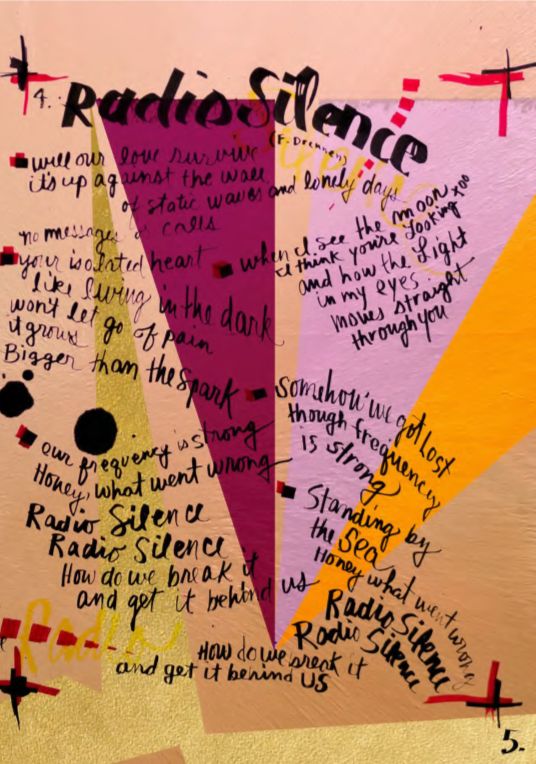 4. Radio Silence
(F. Drennen)
will our love survive
it's up against the wall
of static waves and lonely days
no messages or calls
your isolated heart
like living in the dark
won't let go of pain
it grows
Bigger than the spark
our frequency is strong
Honey, what went wrong
Radio Silence
Radio Silence
How do we break it
and get it behind us
when I see the moon
I think you're looking too
and how the Light
in my eyes
moves straight
through you
somehow we got lost
though frequency
is strong
Standing by
the Sea
Honey what went wrong
Radio Silence
Radio Silence
How do we break it
and get it behind us
Radio
5.